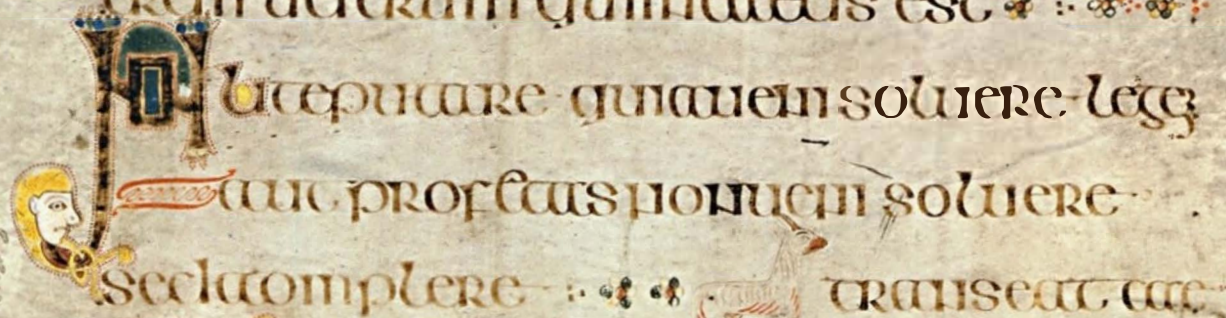 est
Nolite putare quia ueni soluere legem
aut profetas non ueni soluere
sed adimplere transeat cae